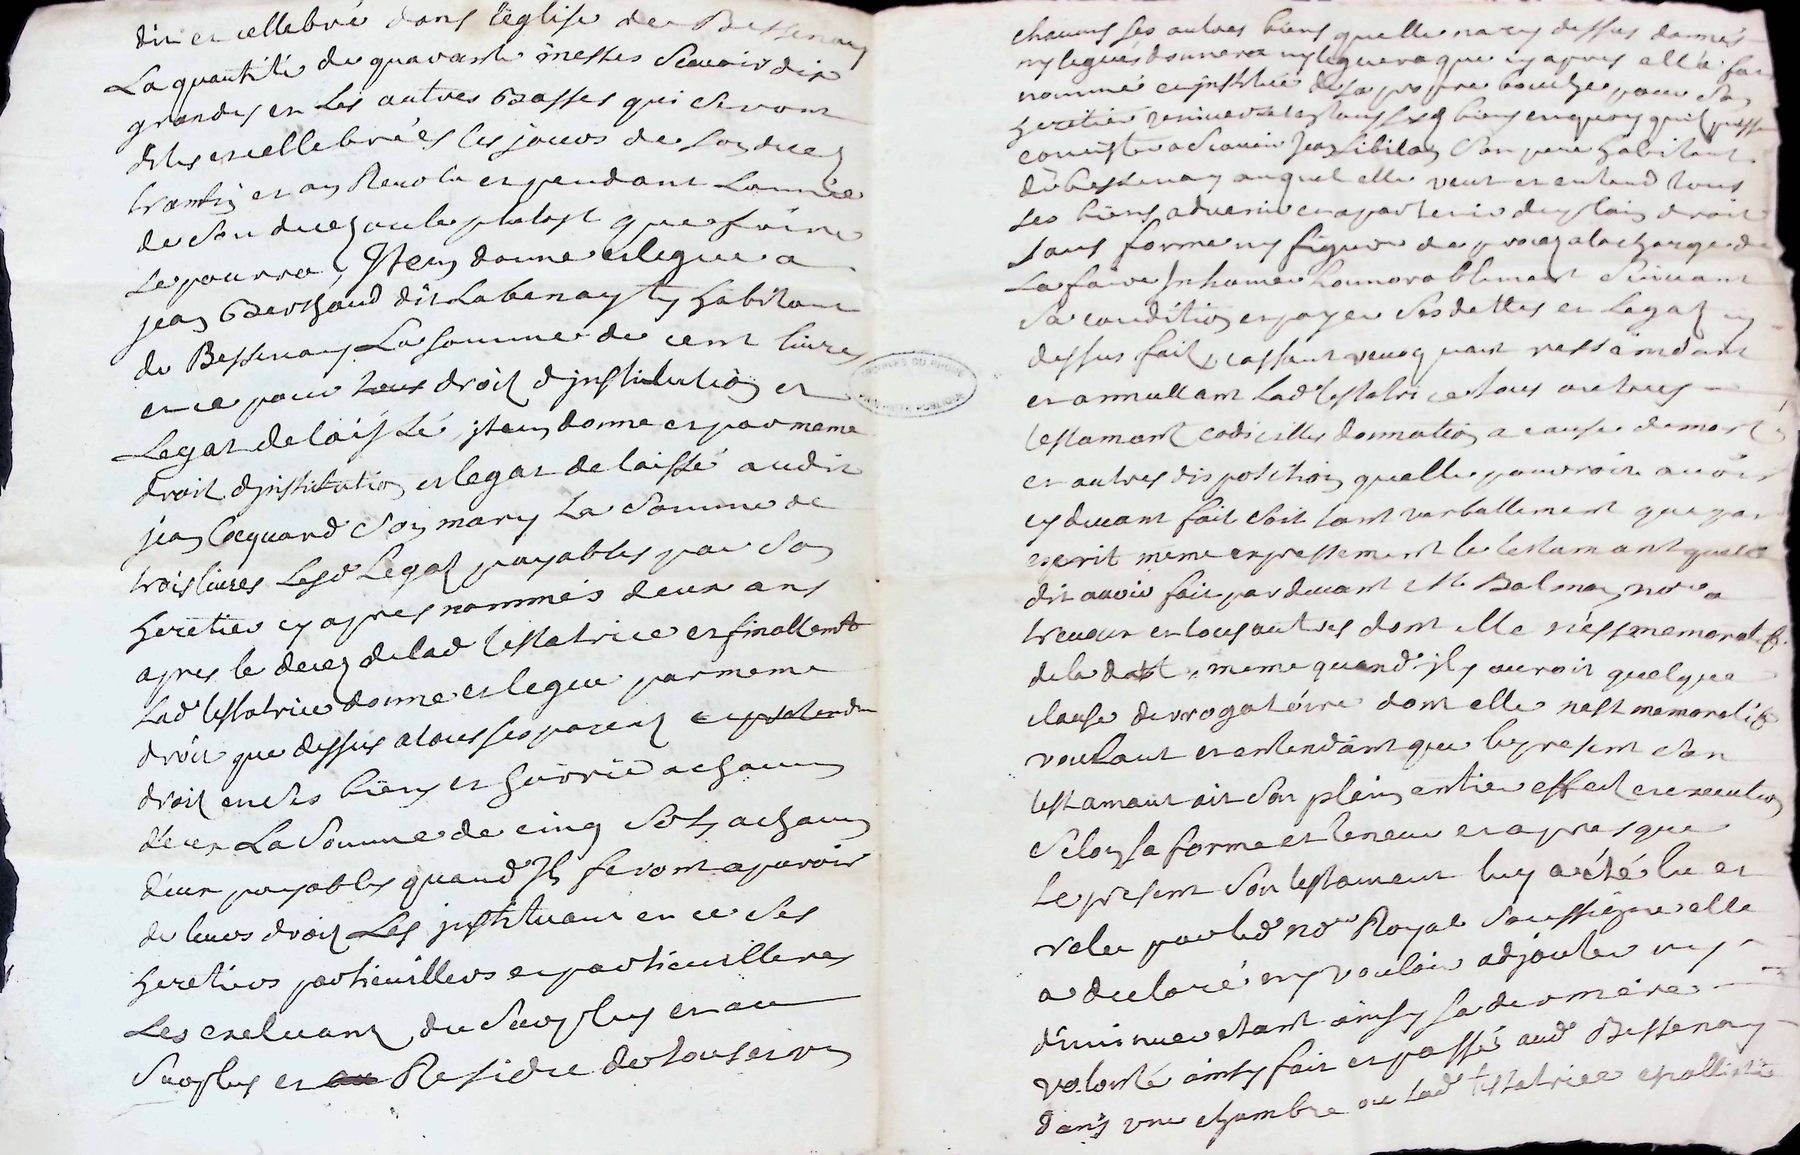 dire et cellebré dans l'églize de Bessenay
La quantité de quarante messes scavoir dix
grandes et Les autres basses qui seront
dites et cellebrées les jours de son decez
trantin et an Revolu et pendant Lannée
de son decez ou le plutost que faire
se pourra, Item donne et legue a
jean Berthaud dit Labenay habitant
de Bessenay La somme de cent livres
et ce pour tous droitz d'jnstitution et
Legat delaissé, jtem donne et par meme
droit d'jnstitution et legat delaissé audit
jean son mary La somme de
trois livres Lesd Legatz payables par son
heretier cy apres nommés deux ans
apres le decez de lad testatrice et finallemt
Lad testatrice donne et legue par meme
droit que dessus a tous ses parens et pretendn
droit en ses biens et hoirrie a chacun
d'eux La somme de cinq solz a chacun
d'eux payables quand Ils feront aparoir
de leurs droitz Les jnstituant en ce ses
heretiers particuilliers et particuilleres
Les excluant du surplus et au
surplus et Residue de tous et un
chacuns ses autres biens quelle na cy dessus donnés
ny legués donnera ny leguera que cy apres elle a fait
nommé et jnstitué de sa propre bouche pour son
heretier universel et biens en quoy quil puisse
consister a scavoir Jean son pere habitant
de Bessenay auquel elle veut et entend tous
ses biens advenir et apartenir de plain droit
sans forme ny figure de procez a la charge de
La faire Inhumer honnorablement suivant
sa condition et payer ses dettes et Legatz cy
dessus faitz, cassant revocquant ressindant
et annullant Lad testatrice tous autres
testamant codicilles donnation a cause de mort
et autres disposition quelle pourroit avoir
cy devant fait soit tant verballement que par
escrit meme expressement le testamant quelle
dit avoir fait par devant Me Balmon nore a
et tous autres dont elle nest memorative
de la datte, meme quand il y auroit quelque
clause derrogatoire dont elle nest memorative
voulant et entendant que le present son
testamant ait son plein entier effect et execution
selon sa forme et teneur et apres que
Le present son testament luy a été lu et
relu par led nore Royal soussigné elle
a declaré ny vouloir adjouter ny
diminuer etant ainsy sa derniere
volonté ainsy fait et passé aud Bessenay
dans une chambre ou lad testatrice